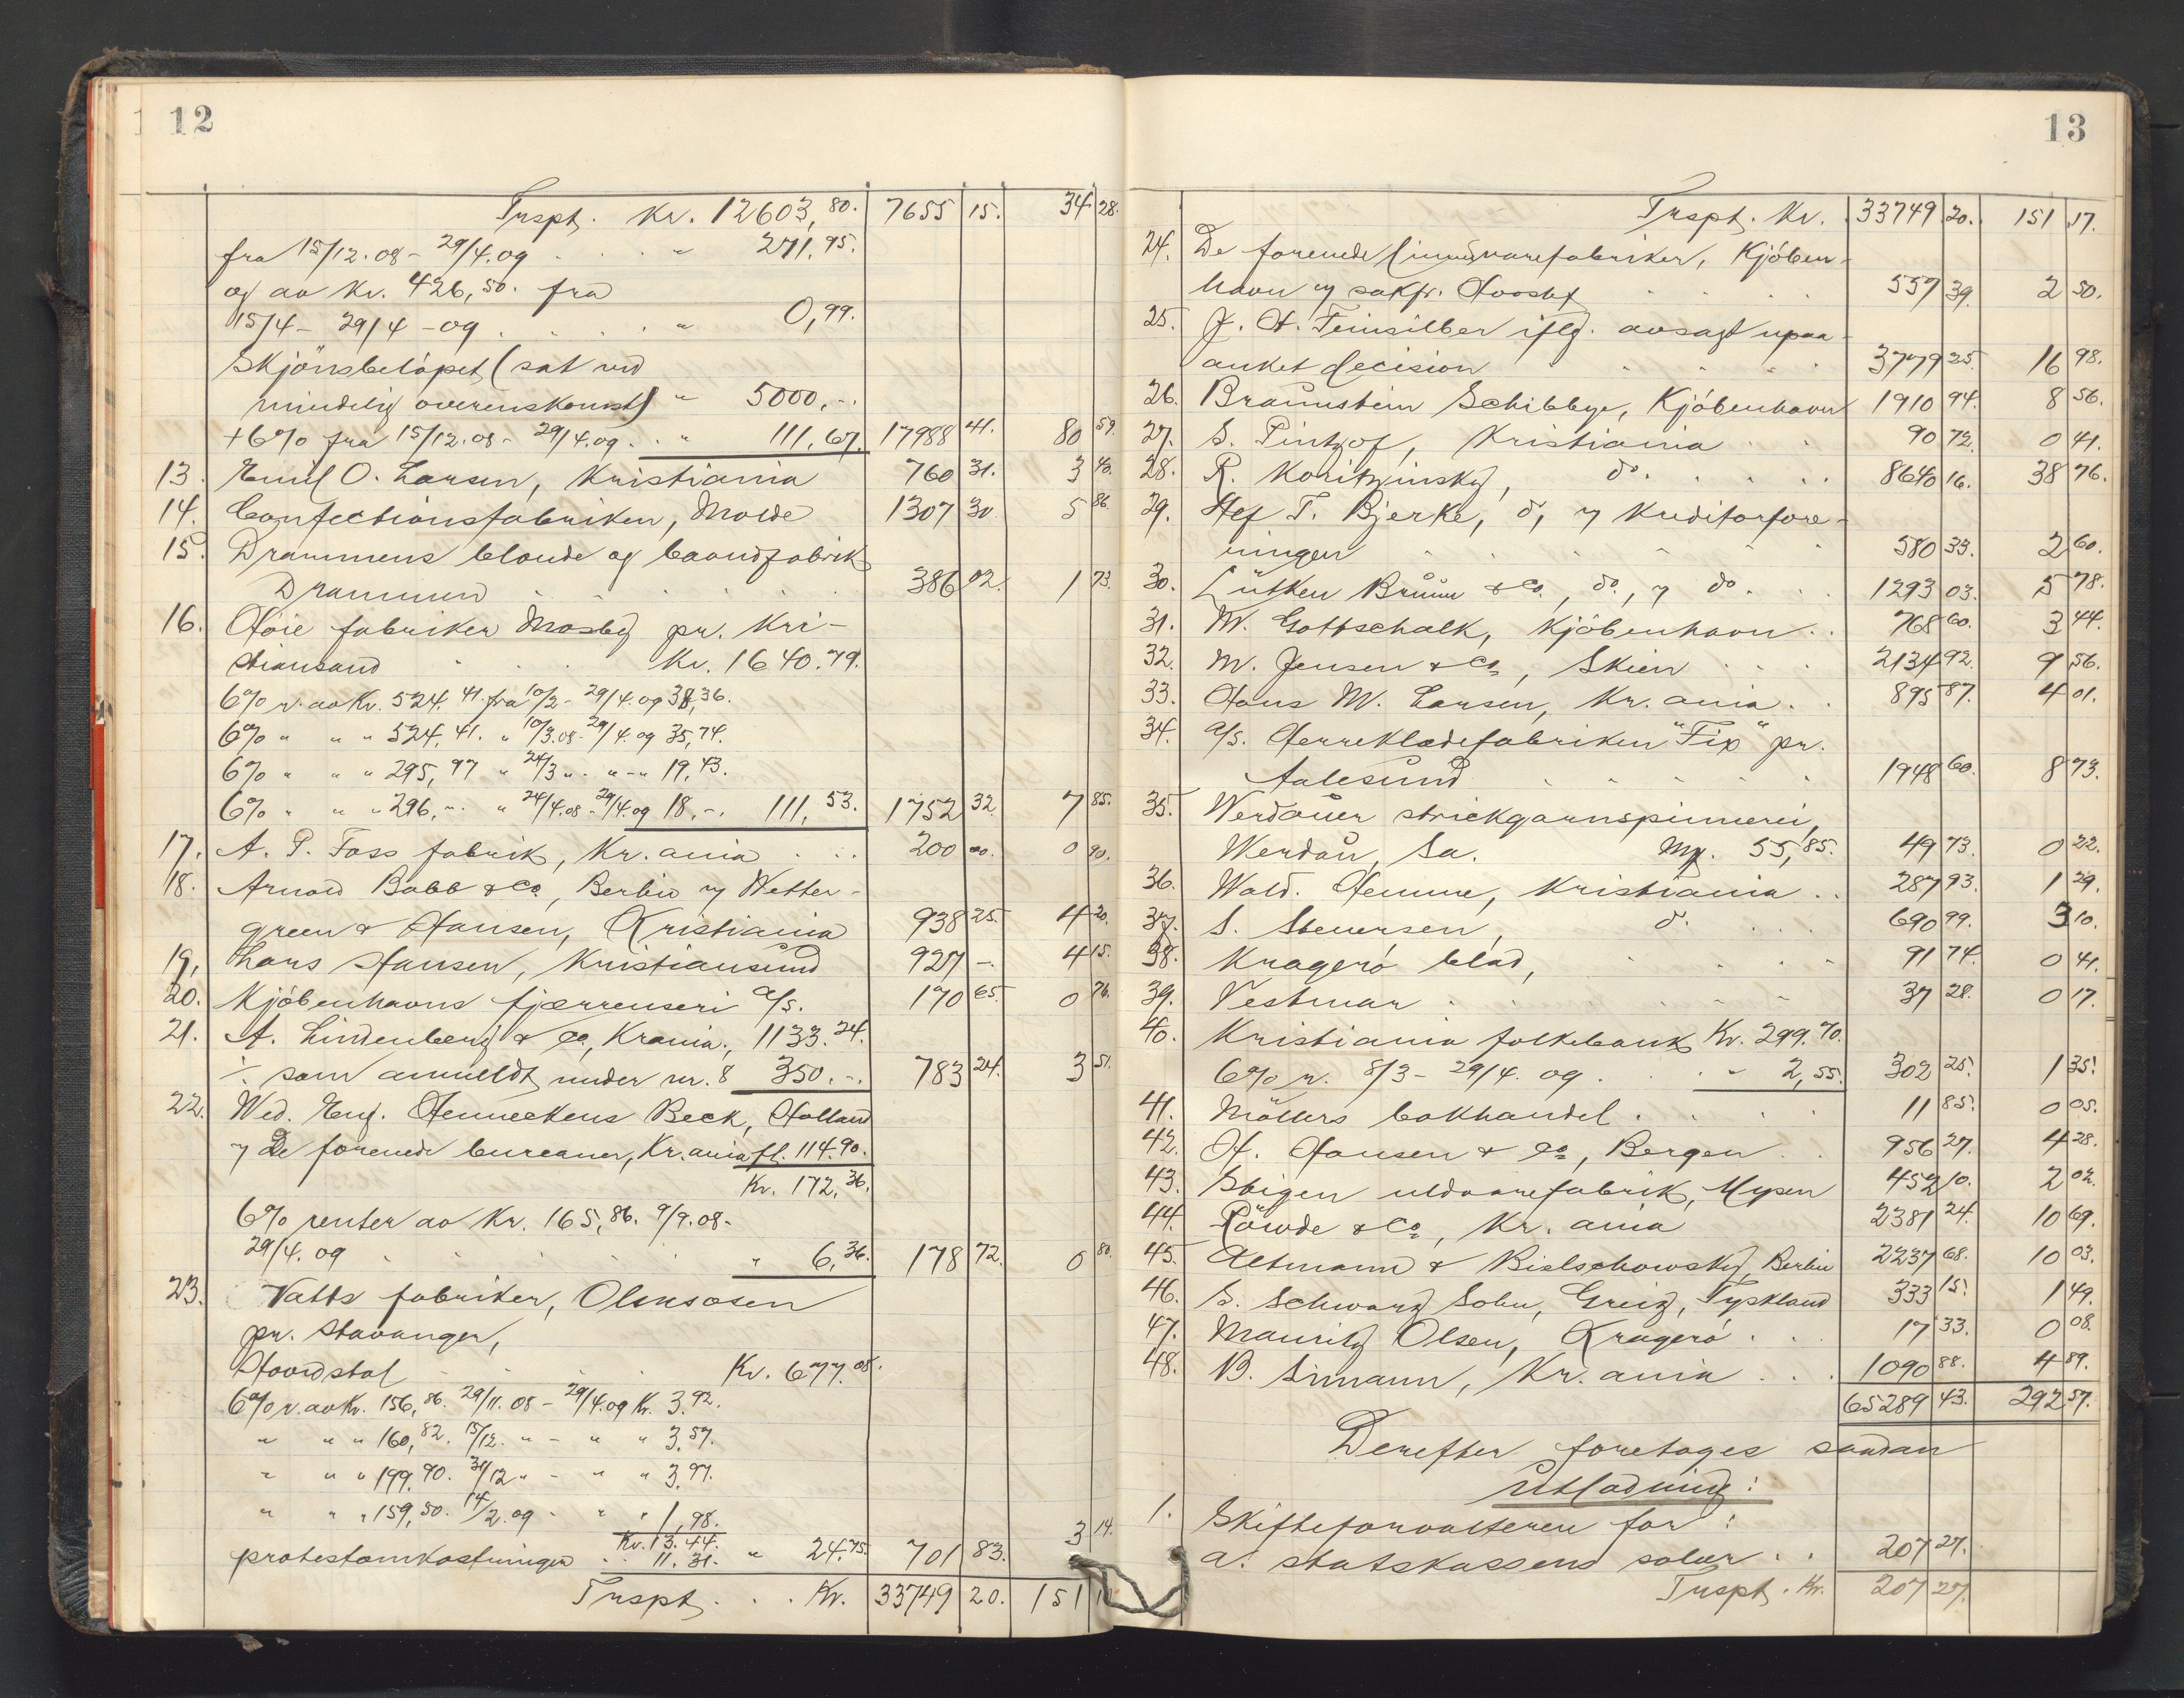 12
Trspt. Kr. 12603,80. 7655 15. 34 28.
fra 15/12.08 - 29/4.09 . . . " 271,95.
og av Kr. 426,50. fra
15/4 - 29/4 - 09 . . . . " 0,99.
Skjönsbelöpet (sat ved
mindelig overenskomst) " 5000,-.
+ 6% fra 15/12.08 - 29/4.09 . . " 111,67. 17988 41. 80 59.
13. Emil O. Larsen, Kristiania 760 31. 3 40.
14. Confectionsfabriken, Molde 1307 30 5 86.
15. Drammens blonde og baandfabrik
Drammen . . . . . 386 02. 1 73.
16. Höie fabriker Mosby pr. Kri-
stiansand . . . Kr. 1640.79.
6% r. av Kr. 524.41. fra 10/2 - 29/4.09 38,36.
6% " " " 524,41. " 10/3.08 - 29/4.09 35,74.
6% " " " 295,97 " 24/3 " - " - " 19,43.
6% " " " 296,-. " 24/4.08 - 29/4.09 18,-. 111,53. 1752 32 7 85.
17. A. P. Foss fabrik, Kr.ania . . . 200 00. 0 90.
18. Arnold Babb & Co, Berlin v Wetter-
green & Hansen, Kristiania 938 25. 4 20.
19. Lars Hansen, Kristiansund 927 -. 4 15.
20. Kjöbenhavns fjærrenseri A/S. 170 65. 0 76.
21. A. Lindenberg & Co, Krania., 1133.24.
÷ som anmeldt under nr. 8 350.-. 783 24. 3 51.
22. Wed. Eug. Henneckens Beck, Holland
v De forenede bureauer, Kr.ania fl. 114.90.
Kr. 172,36.
6% renter av Kr. 165,86. 9/9.08-
29/4.09 . . . . . " 6,36. 178 72. 0 80.
23. Vatts fabriker, Olensosen
pr. Stavanger,
Hovdstol . . . . Kr. 677.08.
6% r. av Kr. 156,86. 29/11.08 - 29/4.09 Kr. 3.92.
" " " 160,82. 15/12. " - " " 3.57.
" " " 199,90. 31/12 " - " " 3.97.
" " " 159,50. 14/2.09 - " " 1,98.
Kr. 13.44.
protestomkostninger . . 11.31. " 24.75. 701 83. 3 14.
Trspt. . . Kr. 33749 20. 151
13
Trspt. Kr. 33749 20. 151 17.
24. De forenede linnedvarefabriker, Kjöben-
havn v sakfr. . . . . 557 39. 2 50.
25. J. A. Feinsilber iflg. avsagt upaa-
anket decision . . . . 3779 25. 16 98.
26. Braunstein Schibbye, Kjöbenhavn 1910 94. 8 56.
27. S. Pintzof, Kristiania . . 90 72. 0 41.
28. R. Koritzinsky, do. . . . . 8640 16. 38 76.
29. T. Bjerke, do, v Kreditorfore-
ningen . . . . . . 580 33. 2 60.
30. Lütken Bruun & Co., do., v do. . . 1293 03. 5 78.
31. M. Gottschalk, Kjöbenhavn . . 768 60. 3 44.
32. M. Jensen & Co, Skien . . . 2134 92. 9 56.
33. Hans M. Larsen, Kr.ania . . 895 87. 4 01.
34. A/S. Herreklædefabriken "Fix" pr.
Aalesund . . . . . 1948 60. 8 73.
35. Werdauer strickgarnspinnerei,
Werdau, Sa. Mk. 55,85. 49 73. 0 22.
36. Wald. Hemme, Kristiania . . 287 93. 1 29.
37. S. Steuersen, do. . . . 690 99. 3 10.
38. Kragerö blad, . . . . 91 74. 0 41.
39. Vestmar . . . . . . 37 28. 0 17.
40. Kristiania folkebank Kr. 299.70.
6% r. 8/3 - 29/4. 09 . . " 2,55. 302 25. 1 35.
41. Möllers bokhandel . . . . 11 85. 0 05.
42. H. Hansen & Co, Bergen . . 956 27. 4 28.
43. Stigen uldvarefabrik, Mysen 452 10. 2 02.
44. Röwde & Co, Kr.ania 2381 24. 10 69.
45. Altmann & Bielschowsky, Berlin 2237 68. 10 03.
46. S. Schwarz Sohn, Greiz, Tyskland 333 15. 1 49.
47. Mauritz Olsen, Kragerö . . 17 33. 0 08.
48. B. Simann, Kr.ania . . . 1090 88. 4 89.
65289 43. 292 57.
Derefter foretages saadan
utlodning:
1. Skifteforvalteren for:
a. statskassens salær . . 207 27.
Trspt. Kr. 207 27.